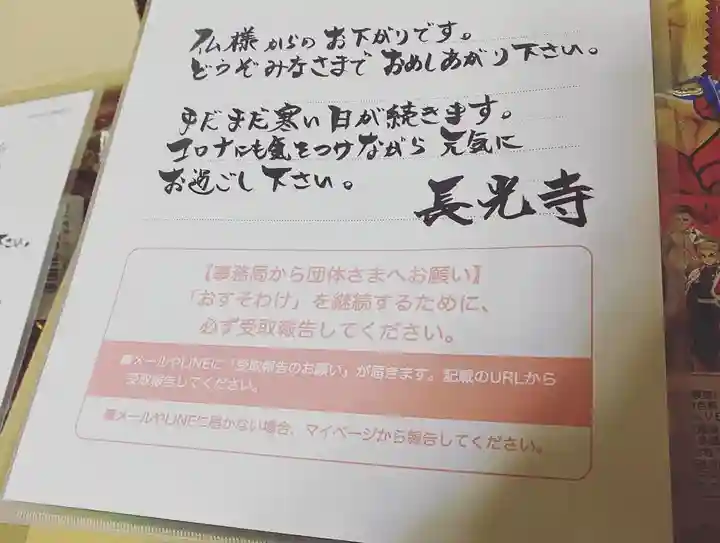 仏様からの お下がりです。
どうぞ みなさまで おめしあがり下さい。
まだまだ寒い日が続きます。
コロナにも気をつけながら 元気に
お過ごし下さい。
長光寺
【事務局から団体さまへお願い】
「おすそわけ」を継続するために、
必ず受取報告してください。
■メールやLINEに「受取報告のお願い」が届きます。記載のURLから
受取報告してください。
■メールやLINEに届かない場合、マイページから報告してください。
さい。